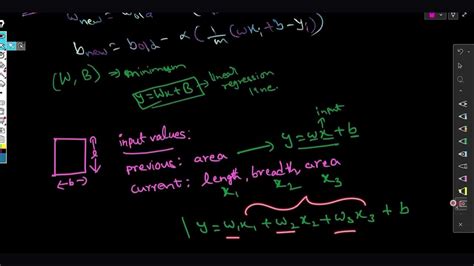 w_new = w_old
b_new = b_old - α ( 1/m (wx_i + b - y_i))
(W, B) ⇒ minimum
y = Wx + B → linear regression line.
input
input values: y = wx + b
previous: area
current: length, breadth area
x_1 x_2 x_3
l
b
y = w_1x_1 + w_2x_2 + w_3x_3 + b